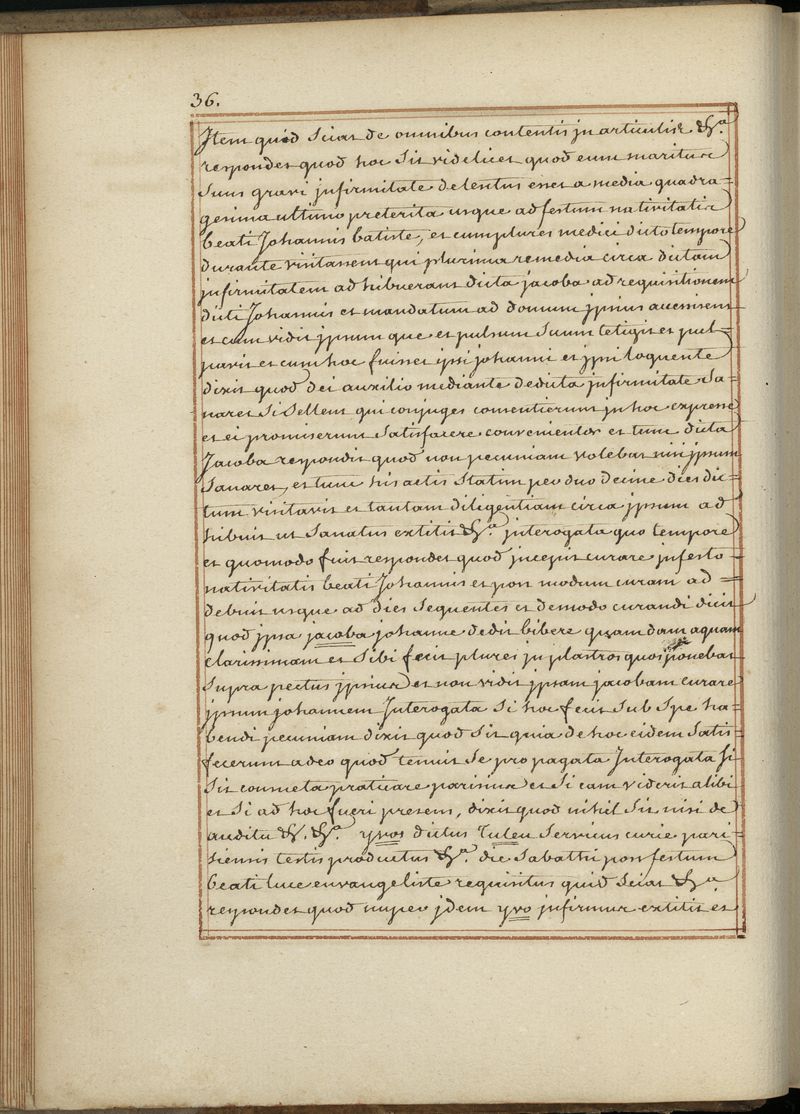 36.
Item quid sciat de omnibus contentis jn articulis &.a
respondet quod hoc sit videlicet quod cum maritus
suus gravi jnfirmitate detentus esset a media quadra=
gesima ultimo preterita usque ad festum nativitatis
beati Johannis batiste, et cum plures medici dicto tempore
durante visitassent qui plurima remedia circa dictam
jnfirmitatem adhibuerant dicta jacoba ad requisitionem
dicti Johannis et mandatum ad domum jpsius accessisset
et cum vidit jpsum que et pulsum suum tetigit et pul=
pavit et cum hoc fuisset ipsi johanni et jpsi loquente
dixit quod dei auxilio mediante de dicta jnfirmitate sa=
naret si sellent qui conjuges consentierunt jn hoc expresse
et ei promiserunt satisfacere convenienter et tunc dicta
Jacoba respondit quod non pecuniam volebat nisi jpsum
sanaret, et tunc his actis statim per duo decime dies dic=
tum visitavit et tantam diligentiam circa jpsum ad
hibuit ut sanatus extitit &.a jnterogata quo tempore
et quomodo fuit respondet quod jncepit curare jn festo
nativitatis beati Johannis et post modum curam ad =
debuit usque ad dies sequentes et de modo curandi dicit
quod jpsa jacoba johanne dedit bibere quamdam aquam
clarissimam et sibi fecit plures jn plastros quos ponebat
supra pectus jpsius et non vidit jpsam jacobam curare
jpsum johannem Interogata si hoc fecit sub spe ha=
bendi pecuniam dixit quod sit quia de hoc eidem satis
fecerunt adeo quod tenuit se pro pagata Interogata si
sit consueta praticare parisius et si eam viderit alibi
et si ad hoc fueri presens, dixit quod nihil sit nisi de
auditu &. &.a yvos dictus Tuleu servicus curie pari=
siensis testis productus &.a die Sabathi post festum
beati luce euvangeliste requisitus quid sciat &.a
respondet quod nuper jdem yvo jnfirmus extitit et